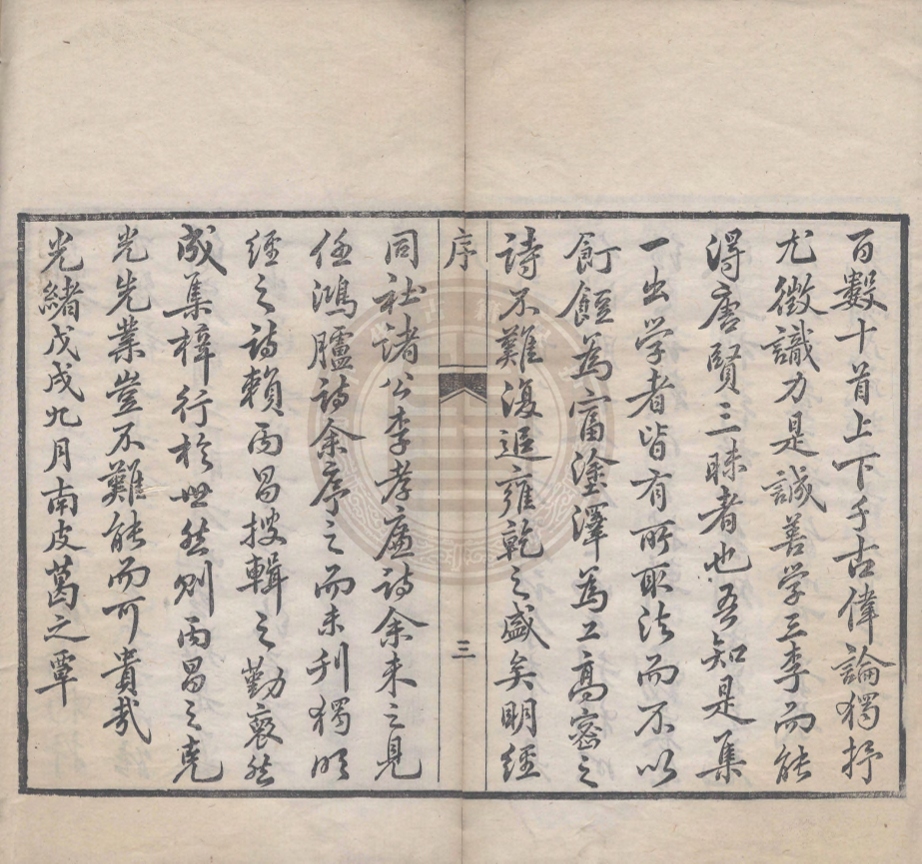 百數十首上下千古偉論獨抒
尤徵識力是誠善学三李而能
得唐賢三昧者也吾知是集
一出学者皆有所取法而不以
飣餖為富塗澤為工高密之
詩不難復追雍乾之盛矣明經
序
三
同社諸公李孝廉詩余未之見
任鴻臚詩余序之而未刊獨明
經之詩賴丙昌搜輯之勤裒然
成集梓行於世然則丙昌之克
光先業豈不難能而可貴哉
光緒戊戌九月南皮葛之覃